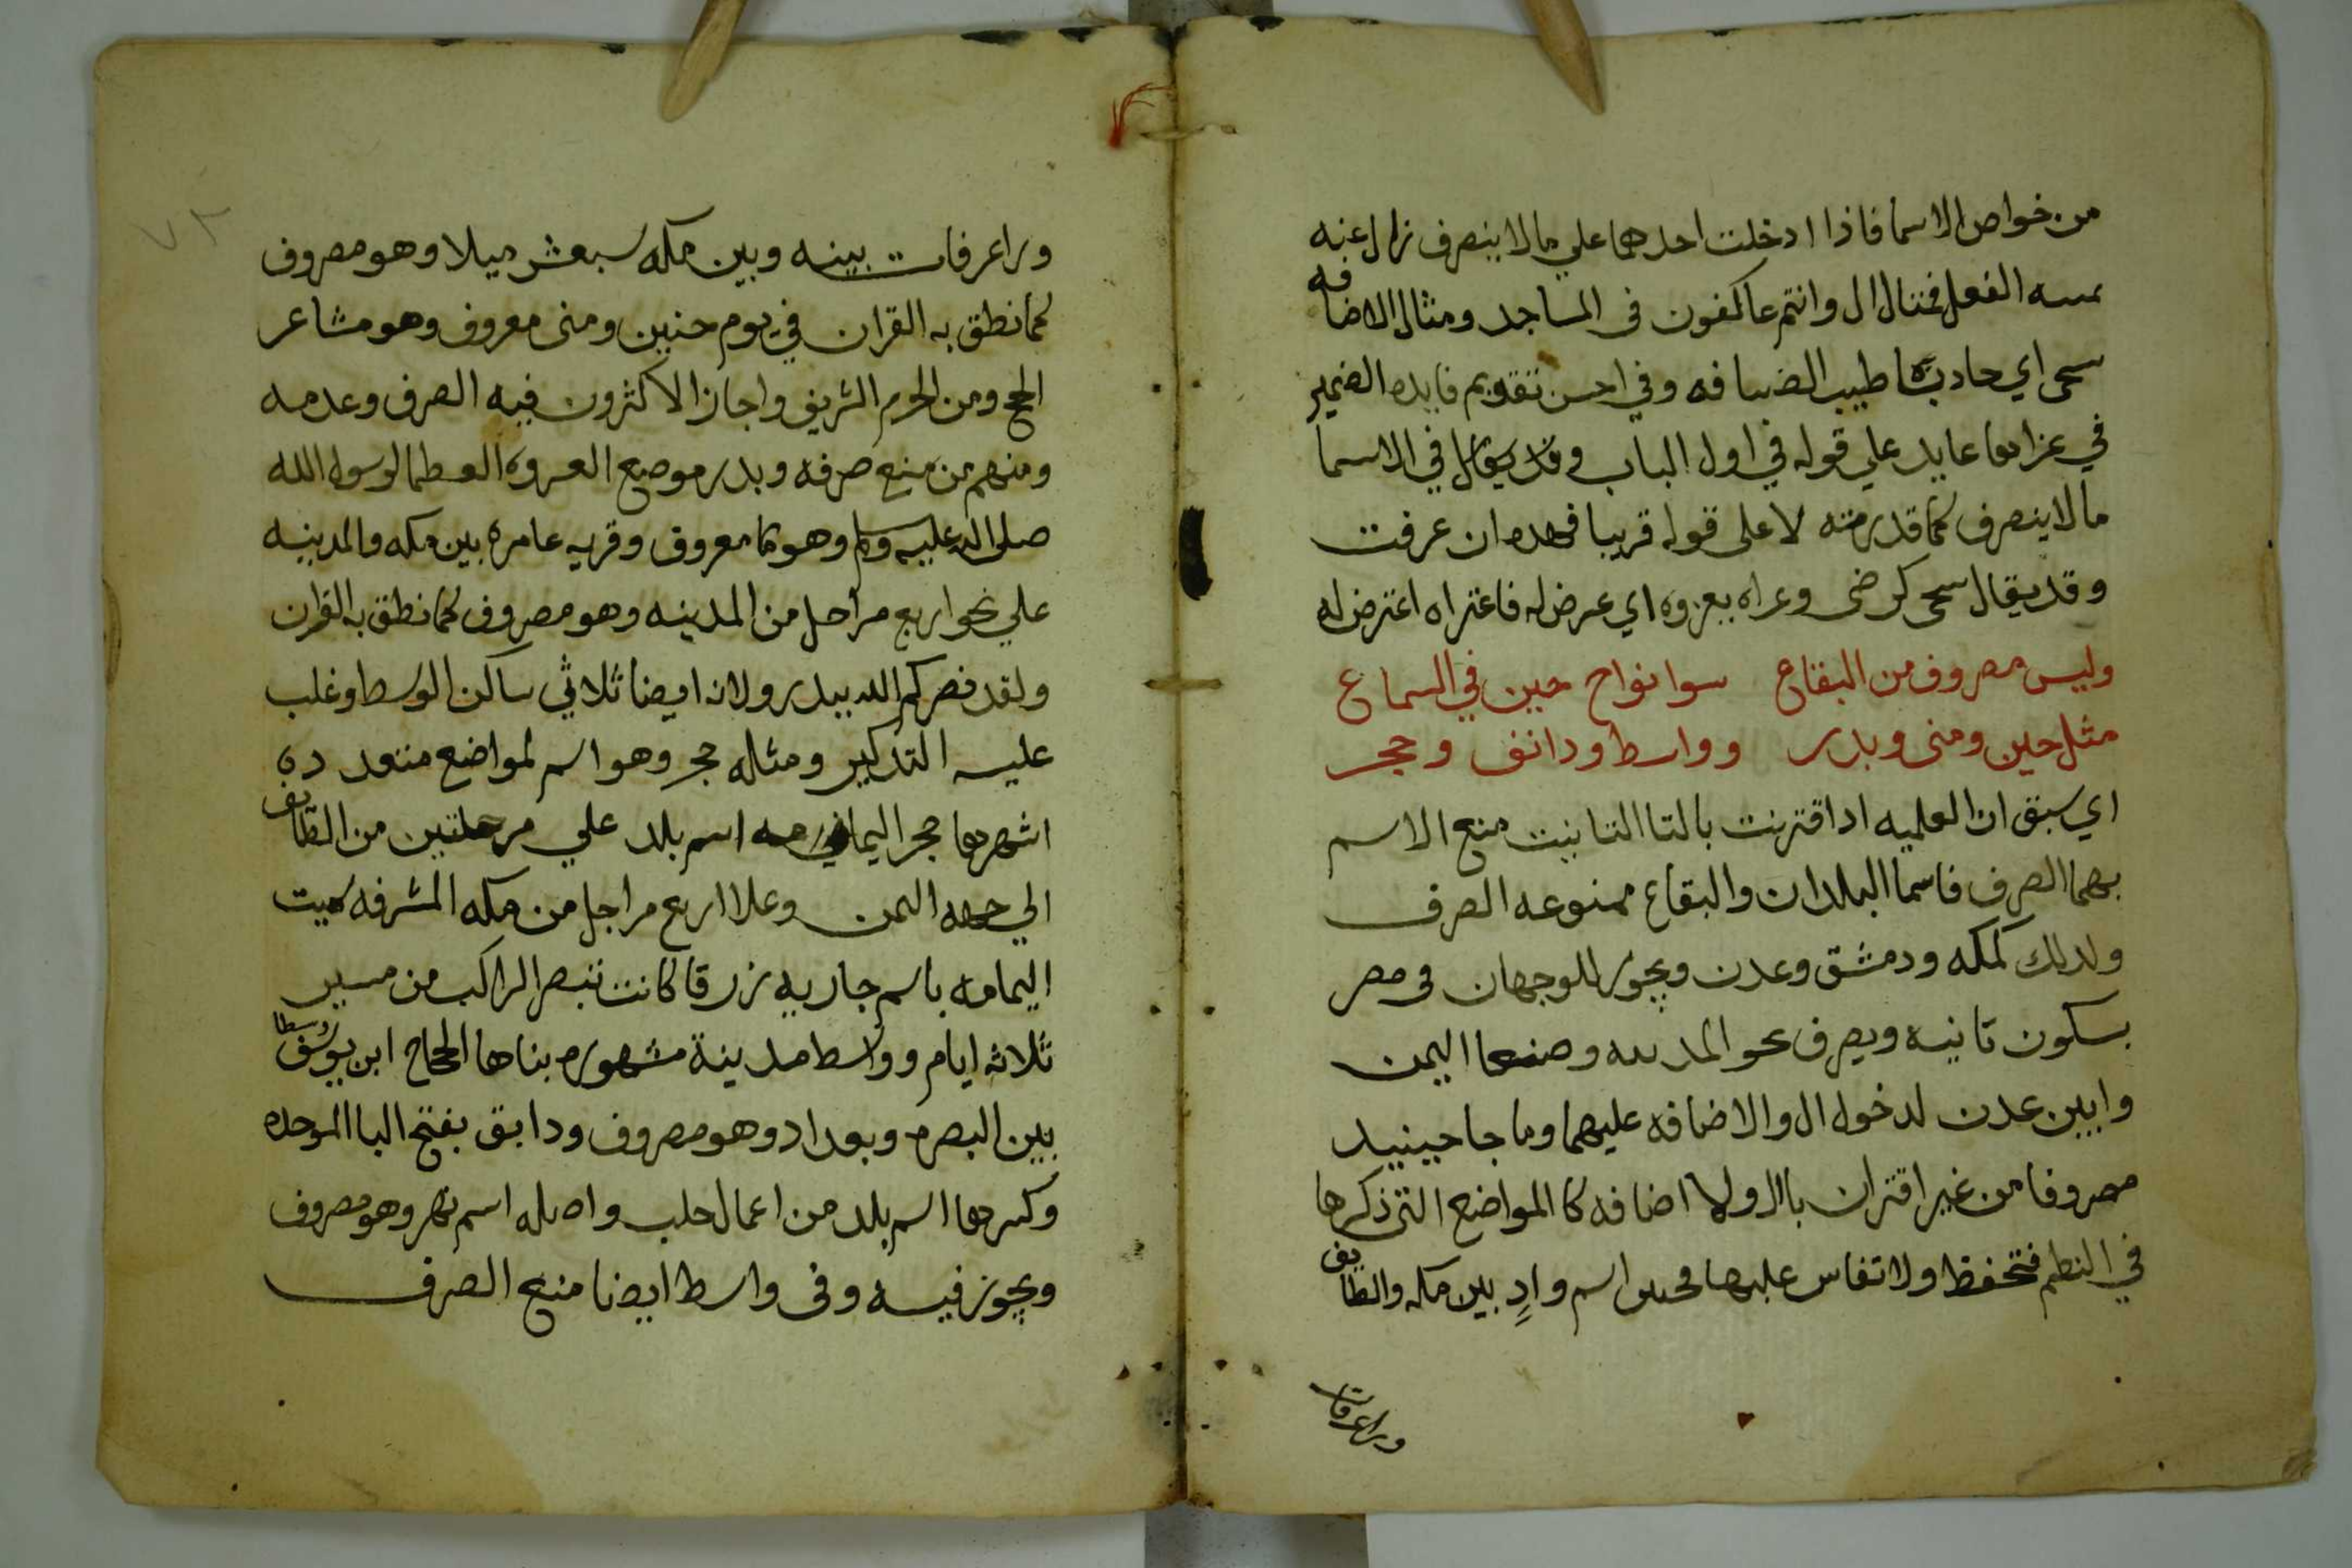 من خواص الاسما فاذا ادخلت احدهما علي مالا ينصرف زال عنه
الفعل فمثال ال وانتم عاكفون في المساجد ومثال الاضافه
سحى اي حادبنا طيب الضيافه وفي احسن تقويم فايده الضمير
في عزاهما عايد علي قوله في اول الباب وقد يقال في الاسما
مالا ينصرف كما قدرمته لا على قوله قريبا فهذه ان عرفت
وقد يقال سحى كرضى وعراه يعروه اي عرض له فاعتراه اعترض له
وليس مصروف من البقاع سوا نواح حين في السماع
مثل حين ومنى وبدر وواسط ودانق وحجر
اي سبق ان العلميه اذا اقترنت بالتا التانيت منع الاسم
بهما الصرف فاسما البلدان والبقاع ممنوعه الصرف
ولدلك كمكه ودمشق وعدن ويجوز للوجهان في مصر
بسكون تانيه ويصرف نحو المدينه وصنعا اليمن
وابين عدن لدخول ال والاضافه عليهما وما جا حينيد
مصروفا من غير اقتران بال ولا اضافه كا المواضع التي ذكرها
في النظم فتحفظ ولا تقاس عليها فحنين اسم وادٍ بين مكه والطايف
وراعرفات
وراعرفات بينه وبين مكه سبعشر ميلا وهو مصروف
كما نطق به القران في يوم حنين ومنى معروف وهو مشاعر
الحج ومن الحرم الشريف واجاز الاكثرون فيه الصرف وعدمه
ومنهم من منع صرفه وبدر موضع الغزوه العظما لرسول الله
صلى الله عليه وسلم وهو ما معروف وقريه عامره بين مكه والمدينه
علي نحو اربع مراحل من المدينه وهو مصروف كما نطق به القران
ولقد نصركم الله ببدر ولانه ايضا ثلاثي ساكن الوسط وغلب
عليه التدكير ومثله حجر وهو اسم لمواضع متعدده
اشهرها حجر اليمامه اسم بلد علي مرحلتين من الطايف
الي جهه اليمن وعلا اربع مراحل من مكه المشرفه سميت
اليمامه باسم جاريه زرقا كانت تبصر الراكب من مسير
ثلاثه ايام وواسط مدينة مشهوره بناها الحجاج ابن يوسف وسطا
بين البصره وبغداد وهو مصروف ودابق بفتح البا الموحده
وكسرها اسم بلد من اعمال حلب واصله اسم نهر وهو مصروف
ويجوز فيه وفي واسط ايضا منع الصرف